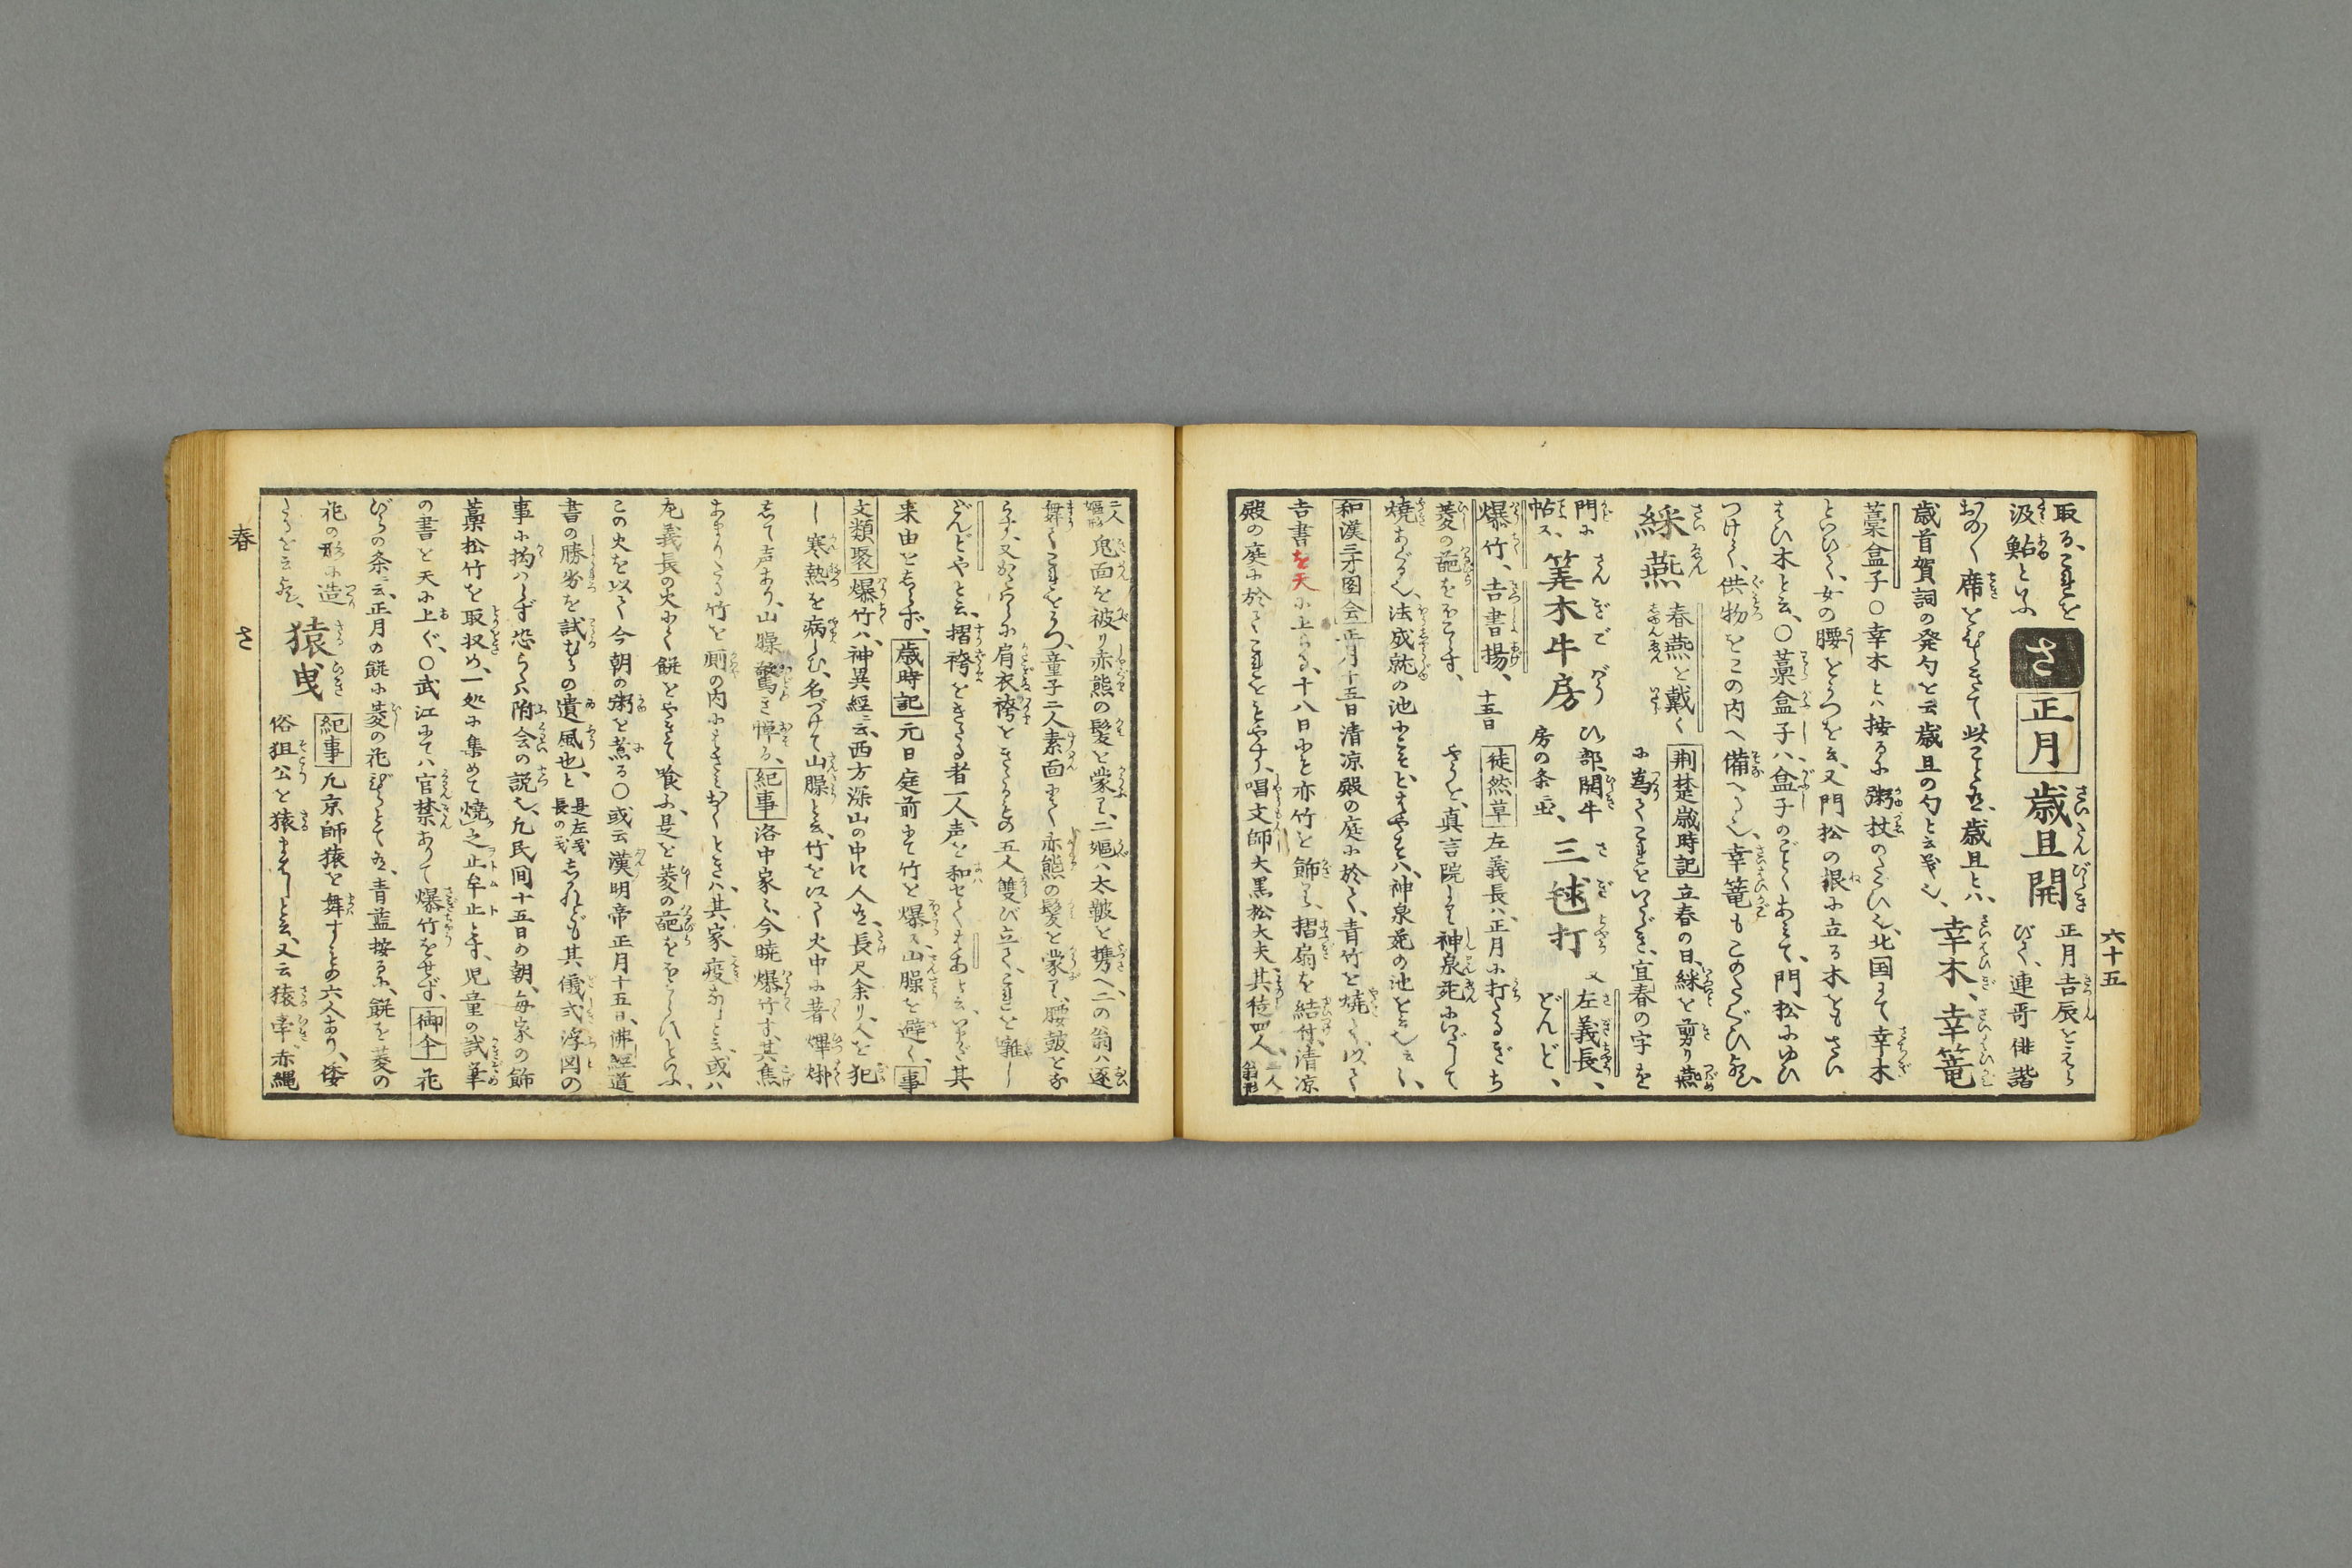 六十五
取る、これを
汲鮎といふ
さ
正月
歳旦開
正月吉辰をえら
びて、連哥俳諧
おの〳〵席をひらきて此ことあり、歳旦とハ、
歳首賀詞の発句を云歳旦の句と云義也、
幸木、幸篭
藁盒子〇幸木とハ按るに粥杖のたぐひ也、北国にて幸木
といひて、女の腰をうつを云、又門松の根に立る木をもさい
はひ木と云、〇藁盒子ハ、盒子のごとくあミて、門松にゆひ
つけて、供物をこの内へ備へる也、幸篭もこのたぐひ歟、
綵燕
春燕を戴く
荊楚歳時記
立春の日、綵を剪り燕
に為りてこれをいたゞき、宜春の字を
門に
帖ス、
筭木牛房
ひ部開牛
房の条ニ出、
三毬打
又左義長、
どんど、
爆竹、吉書揚、
十五日
徒然草
左義長ハ、正月に打たるぎち
やうを、真言院より神泉苑にいだして
菱の葩をおこす、
焼あぐる也、法成就の池にこそとはやすハ、神泉苑の池をいふ也云〻、
和漢三才図会
正月十五日清凉殿の庭に於て、青竹を焼て、以て
吉書を天に上らる、十八日にも亦竹を飾り、摺扇を結付、清凉
殿の庭に於てこれをはやす、唱文師大黒松大夫、其徒四人、二人翁形
二人嫗形鬼面を被り赤熊の髪を蒙り、二嫗ハ太皷を携へ二の翁ハ逐
舞てこれをうつ、童子二人素面にて赤熊の髪を蒙り、腰皷をな
らす、又かたはらに肩衣袴をきるもの五人雙び立て、これを囃し
どんどやと云、摺袴をきたる者一人、声を和せてはあと云、いまだ其
来由をしらず、
歳時記
元日庭前にて竹を爆ス、山臊を避く、
事
文類聚
爆竹ハ、神異経云、西方深山の中に人有、長尺余り、人を犯
し寒熱を病しむ、名づけて山臊と云、竹を以て火中に著𤒹烞
して声あり、山臊驚き憚る、
紀事
洛中家〻今暁爆竹す、其焦
あまりたる竹を厠の内にはさみおくときハ、其家疫なしと云、或ハ
左義長の火にて餅をやきて喰ふ、是を菱の葩をおこすといふ、
この火を以て今朝の粥を煮る〇或云漢明帝正月十五日、佛経道
書の勝劣を試むるの遺風也と、是左義長の義しかれども其儀式浮図の
事に拘ハらず恐らくハ附会の説也、凡民間十五日の朝、毎家の飾
藁松竹を取収め、一処に集めて焼之止牟止と号、児童の試筆
の書を天に上ぐ、〇武江にてハ官禁ありて爆竹をせず、
御傘
花
びらの条云、正月の餅に菱の花びらとて有、青藍按るに、餅を菱の
花の形に造
たるを云歟、
猿曳
紀事
凡京師猿を舞すもの六人あり、倭
俗狙公を猿まはしと云、又云猿牽赤縄
春
さ